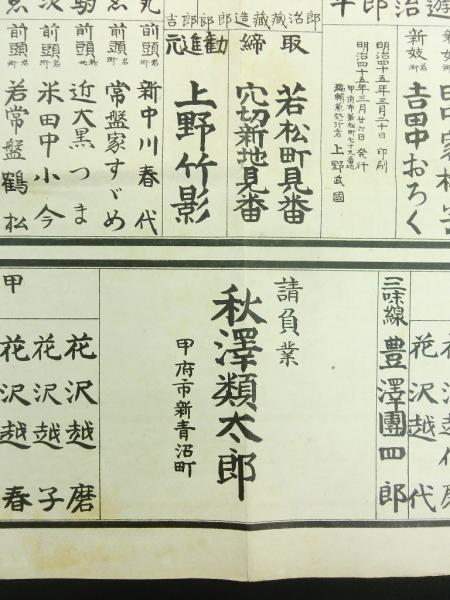 新妓 若町
吉田中おろく
明治四十五年三月二十日 印刷
明治四十五年三月廿六日 発行
上野武國
取締
若松町見番
穴切新地見番
勧進元
上野竹影
前頭 若町
新中川春代
前頭 若町
常盤家すゞめ
前頭 新
近大黒つま
前頭 若町
米田中小今
前頭 若町
若常盤鶴松
花沢越代
三味線 豊澤團四郎
請負業
秋澤類太郎
甲府市新青沼町
花沢越磨
花沢越子
花沢越春
甲